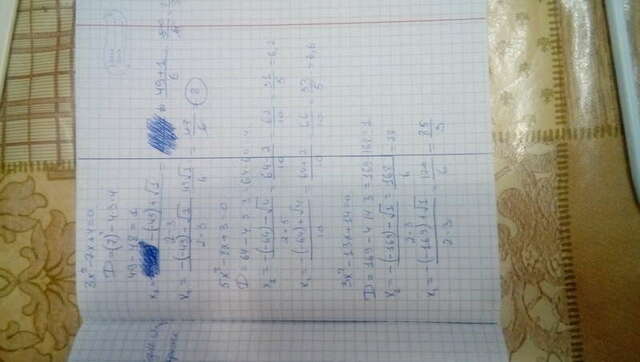 3x² - 7x + 4 = 0
D = (7)² - 4·3·4
49 - 48 = 1
x₁ = -(-49) + √1 / 2·3 = 49+1 / 6
x₂ = -(-49) - √1 / 2·3 = 47 / 6 = 8
5x² - 8x + 3 = 0
D = 64 - 4·5·3 = 64 - 60 = 4
x₂ = -(-64) - √4 / 2·5 = 64-2 / 10 = 62 / 10 = 31 / 5 = 6,2
x₁ = -(-64) + √4 / 10 = 64+2 / 10 = 66 / 10 = 33 / 5 = 6,6
3x² - 13x + 14 = 0
D = 169 - 4·14·3 = 169 - 168 = 1
x₂ = -(-169) - √1 / 2·3 = 168 / 6 = 28
x₁ = -(-169) + √1 / 2·3 = 170 / 6 = 85 / 3